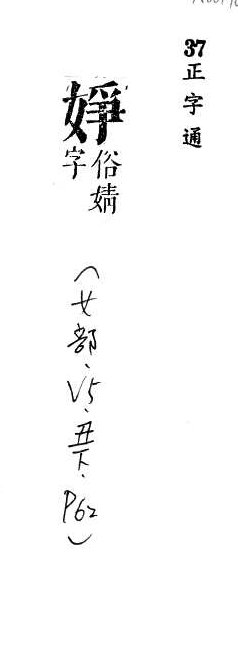 37正字通
婙俗婧
字
（女部、V5、丑下、P62）